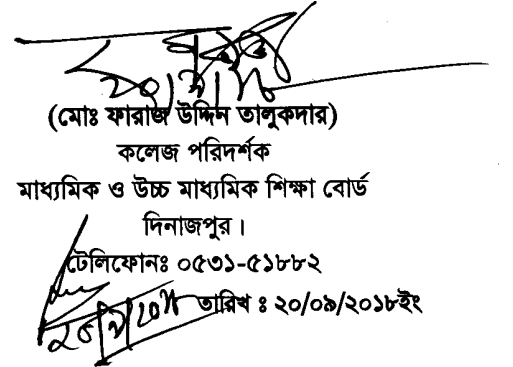 (মোঃ ফারাজ উদ্দিন তালুকদার)
কলেজ পরিদর্শক
মাধ্যমিক ও উচ্চ মাধ্যমিক শিক্ষা বোর্ড
দিনাজপুর।
টেলিফোনঃ ০৫৩১-৫১৮৮২
তারিখ ঃ ২০/০৯/২০১৮ইং